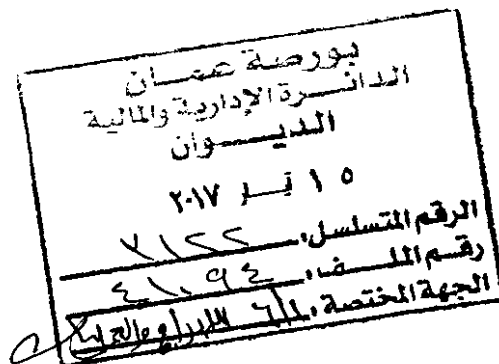 بورصة عمان
الدائرة الإدارية والمالية
الديوان
١٥ تـ ٢٠١٧
الرقم المتسلسل: ٣١٢٢
رقم الملف: ٤١٠٩٤
الجهة المختصة: